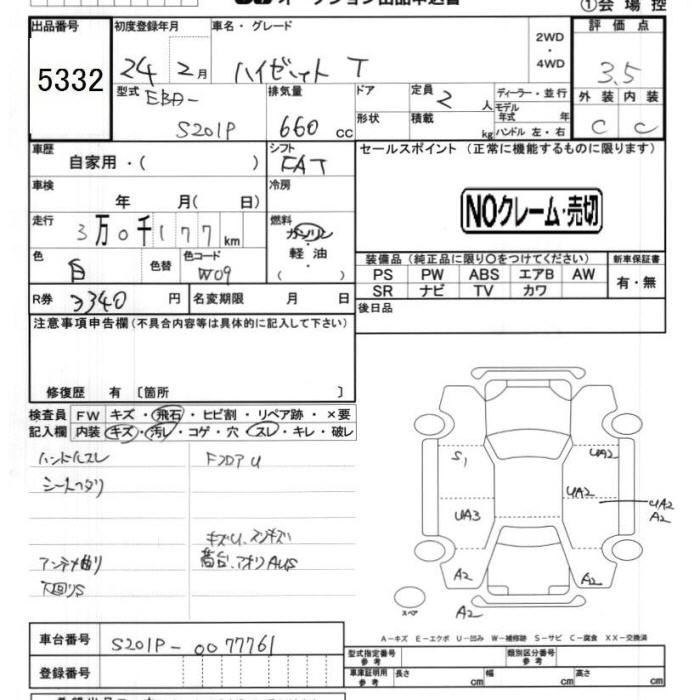 オークション出品申込書
①会場控
出品番号 初度登録年月 車名・グレード 評価点
5332 24年 2月 ハイゼット T 2WD・4WD 3.5
型式 EBD-S201P 排気量 660cc ドア 形状 定員 2人 積載 kg ディーラー・並行 モデル年式 年 ハンドル 左・右
外装 内装
C C
車歴 自家用・( ) シフト FAT セールスポイント (正常に機能するものに限ります)
車検 年 月( 日) 冷房
NOクレーム・売切
走行 3万0千177km 燃料 ガソリン・軽油・( )
色 白 色替 色コード W09 装備品 (純正品に限り○をつけてください) 新車保証書
PS PW ABS エアB AW 有・無
SR ナビ TV カワ
R券 3340円 名変期限 月 日 後日品
注意事項申告欄(不具合内容等は具体的に記入して下さい)
修復歴 有〔箇所 〕
検査員 FW キズ・飛石・ヒビ割・リペア跡・×要
記入欄 内装 キズ・汚レ・コゲ・穴・スレ・キレ・破レ
ハンドルスレ フロアU
シートヘタリ
キズU、スリキズ
アンテナ曲り 荷台、アオリAUS
下回りS
S1 UA2
UA2 UA2
A2
UA3
A2 A2
スペア A2
A−キズ E−エクボ U−凹み W−補修跡 S−サビ C−腐食 XX−交換済
車台番号 S201P-0077761 型式指定番号 参考 類別区分番号 参考
登録番号 車庫証明用 参考 長さ cm 幅 cm 高さ cm